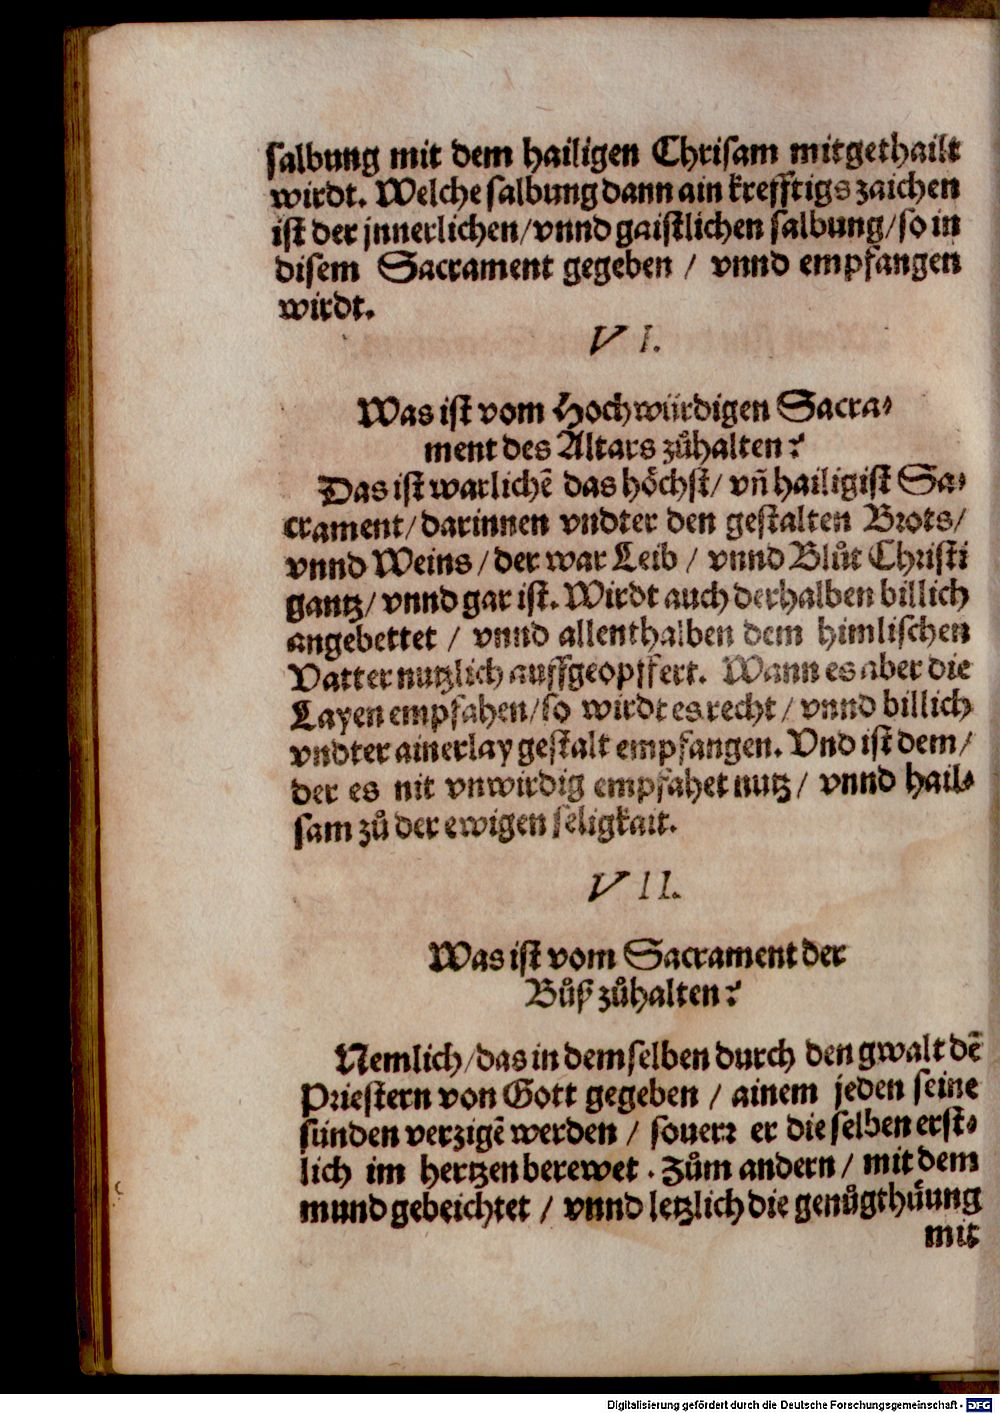 salbung mit dem hailigen Chrisam mitgethailt
wirdt. Welche salbung dann ain krefftigs zaichen
ist der jnnerlichen/vnnd gaistlichen salbung/so in
disem Sacrament gegeben / vnnd empfangen
wirdt.
VI.
Was ist vom Hochwürdigen Sacra⸗
ment des Altars zůhalten?
Das ist warlichē das höchst/ vn̄ hailigist Sa⸗
crament/darinnen vndter den gestalten Brots/
vnnd Weins/der war Leib / vnnd Blůt Christi
gantz/vnnd gar ist. Wirdt auch derhalben billich
angebettet / vnnd allenthalben dem himlischen
Vatter nutzlich auffgeopffert. Wann es aber die
Layen empfahen/so wirdt es recht / vnnd billich
vndter ainerlay gestalt empfangen. Vnd ist dem/
der es nit vnwirdig empfahet nutz/ vnnd hail⸗
sam zů der ewigen seligkait.
VII.
Was ist vom Sacrament der
Bůß zůhalten?
Nemlich/das in demselben durch den gwalt dē
Priestern von Gott gegeben / ainem jeden seine
sünden verzigē werden / souerr er die selben erst⸗
lich im hertzen berewet. Zům andern / mit dem
mund gebeichtet / vnnd letzlich die genůgthůung
mit
Digitalisierung gefördert durch die Deutsche Forschungsgemeinschaft - DFG